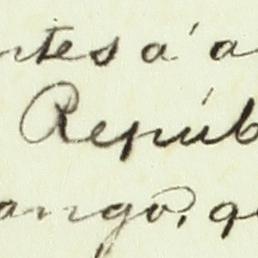 ntes á a
Repúb
ango, q